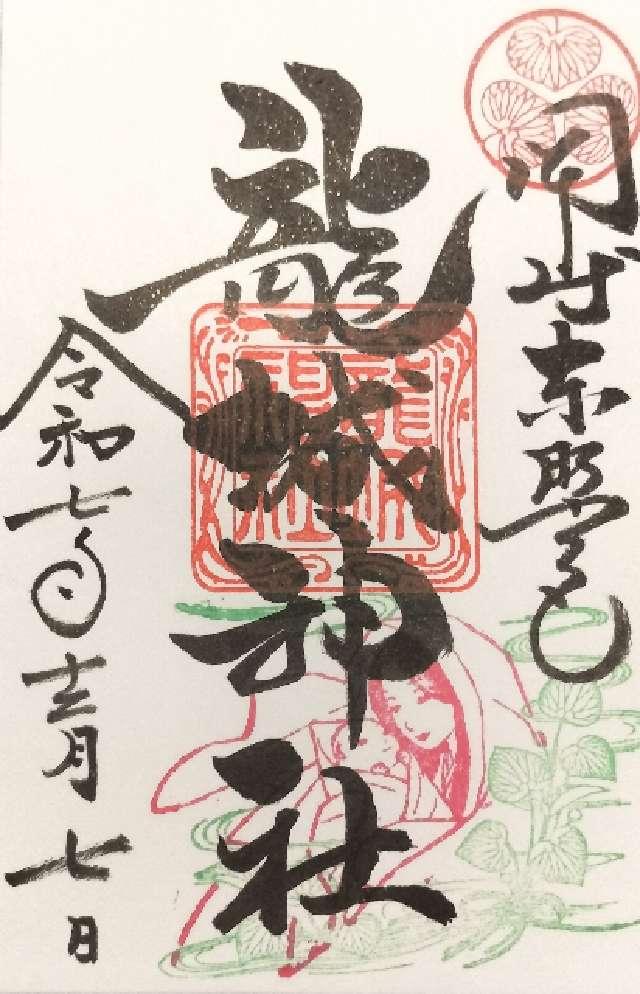 岡崎東照宮
龍城神社
龍城神社
令和七年十二月七日